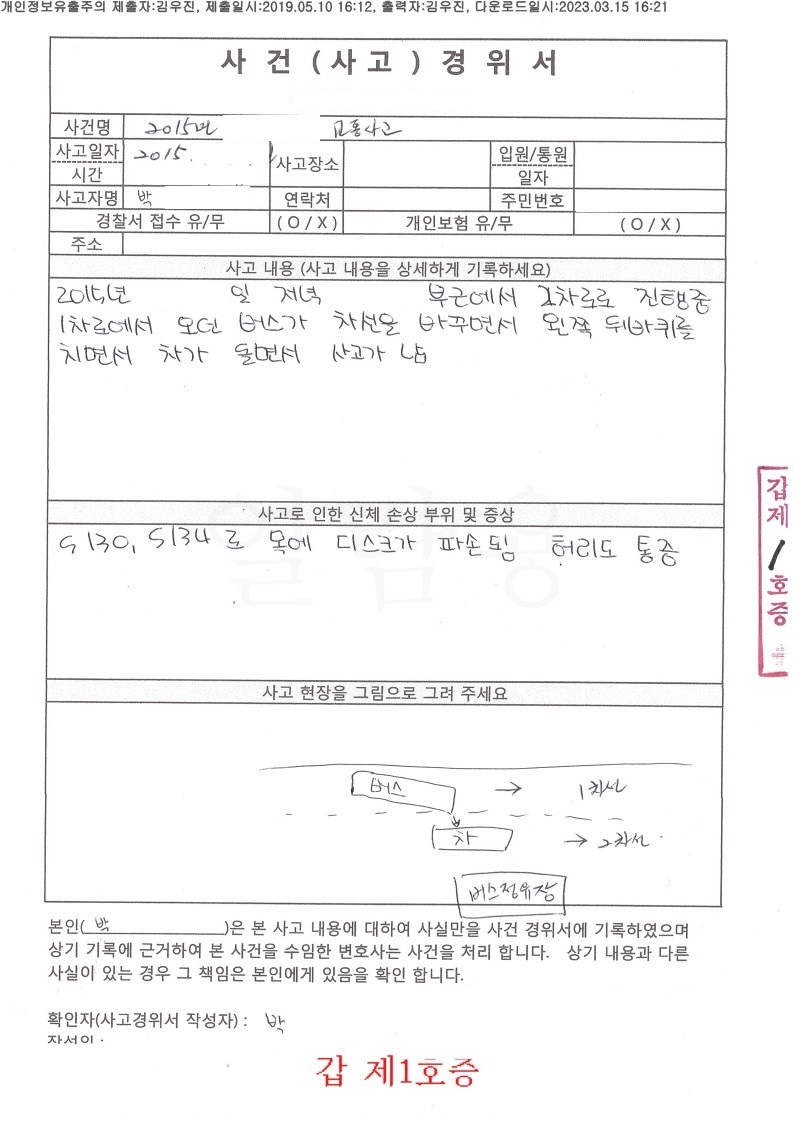 개인정보유출주의 제출자:김우진, 제출일시:2019.05.10 16:12, 출력자:김우진, 다운로드일시:2023.03.15 16:21
사 건 ( 사 고 ) 경 위 서
사건명 2015년 교통사고
사고일자 2015
시간
사고장소
입원/통원
일자
사고자명 박 연락처 주민번호
경찰서 접수 유/무 ( O / X ) 개인보험 유/무 ( O / X )
주소
사고 내용 (사고 내용을 상세하게 기록하세요)
2015년 일 저녁 부근에서 2차로로 진행중
1차로에서 오던 버스가 차선을 바꾸면서 왼쪽 뒤바퀴를
치면서 차가 돌면서 사고가 남
사고로 인한 신체 손상 부위 및 증상
S130, S134 로 목에 디스크가 파손됨 허리도 통증
사고 현장을 그림으로 그려 주세요
버스 → 1차선
차 → 2차선
버스정유장
본인( 박 )은 본 사고 내용에 대하여 사실만을 사건 경위서에 기록하였으며
상기 기록에 근거하여 본 사건을 수임한 변호사는 사건을 처리 합니다. 상기 내용과 다른
사실이 있는 경우 그 책임은 본인에게 있음을 확인 합니다.
확인자(사고경위서 작성자) : 박
작성일 :
갑 제1호증
갑제1호증